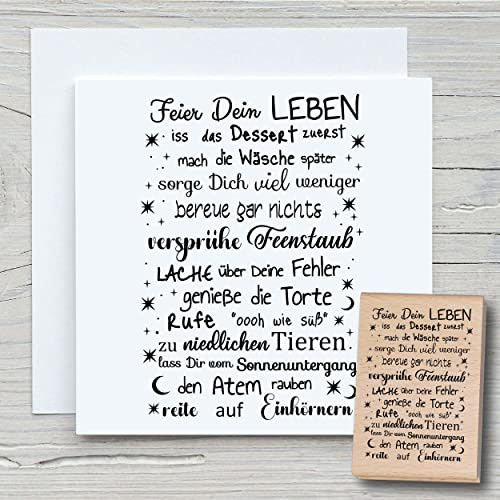 Feier Dein LEBEN
iss das Dessert zuerst
mach die Wäsche später
sorge Dich viel weniger
bereue gar nichts
versprühe Feenstaub
LACHE über Deine Fehler
genieße die Torte
Rufe "oooh wie süß"
zu niedlichen Tieren
lass Dir vom Sonnenuntergang
den Atem rauben
reite auf Einhörnern
Feier Dein LEBEN
iss das Dessert zuerst
mach die Wäsche später
sorge Dich viel weniger
bereue gar nichts
versprühe Feenstaub
LACHE über Deine Fehler
genieße die Torte
Rufe "oooh wie süß"
zu niedlichen Tieren
lass Dir vom Sonnenuntergang
den Atem rauben
reite auf Einhörnern